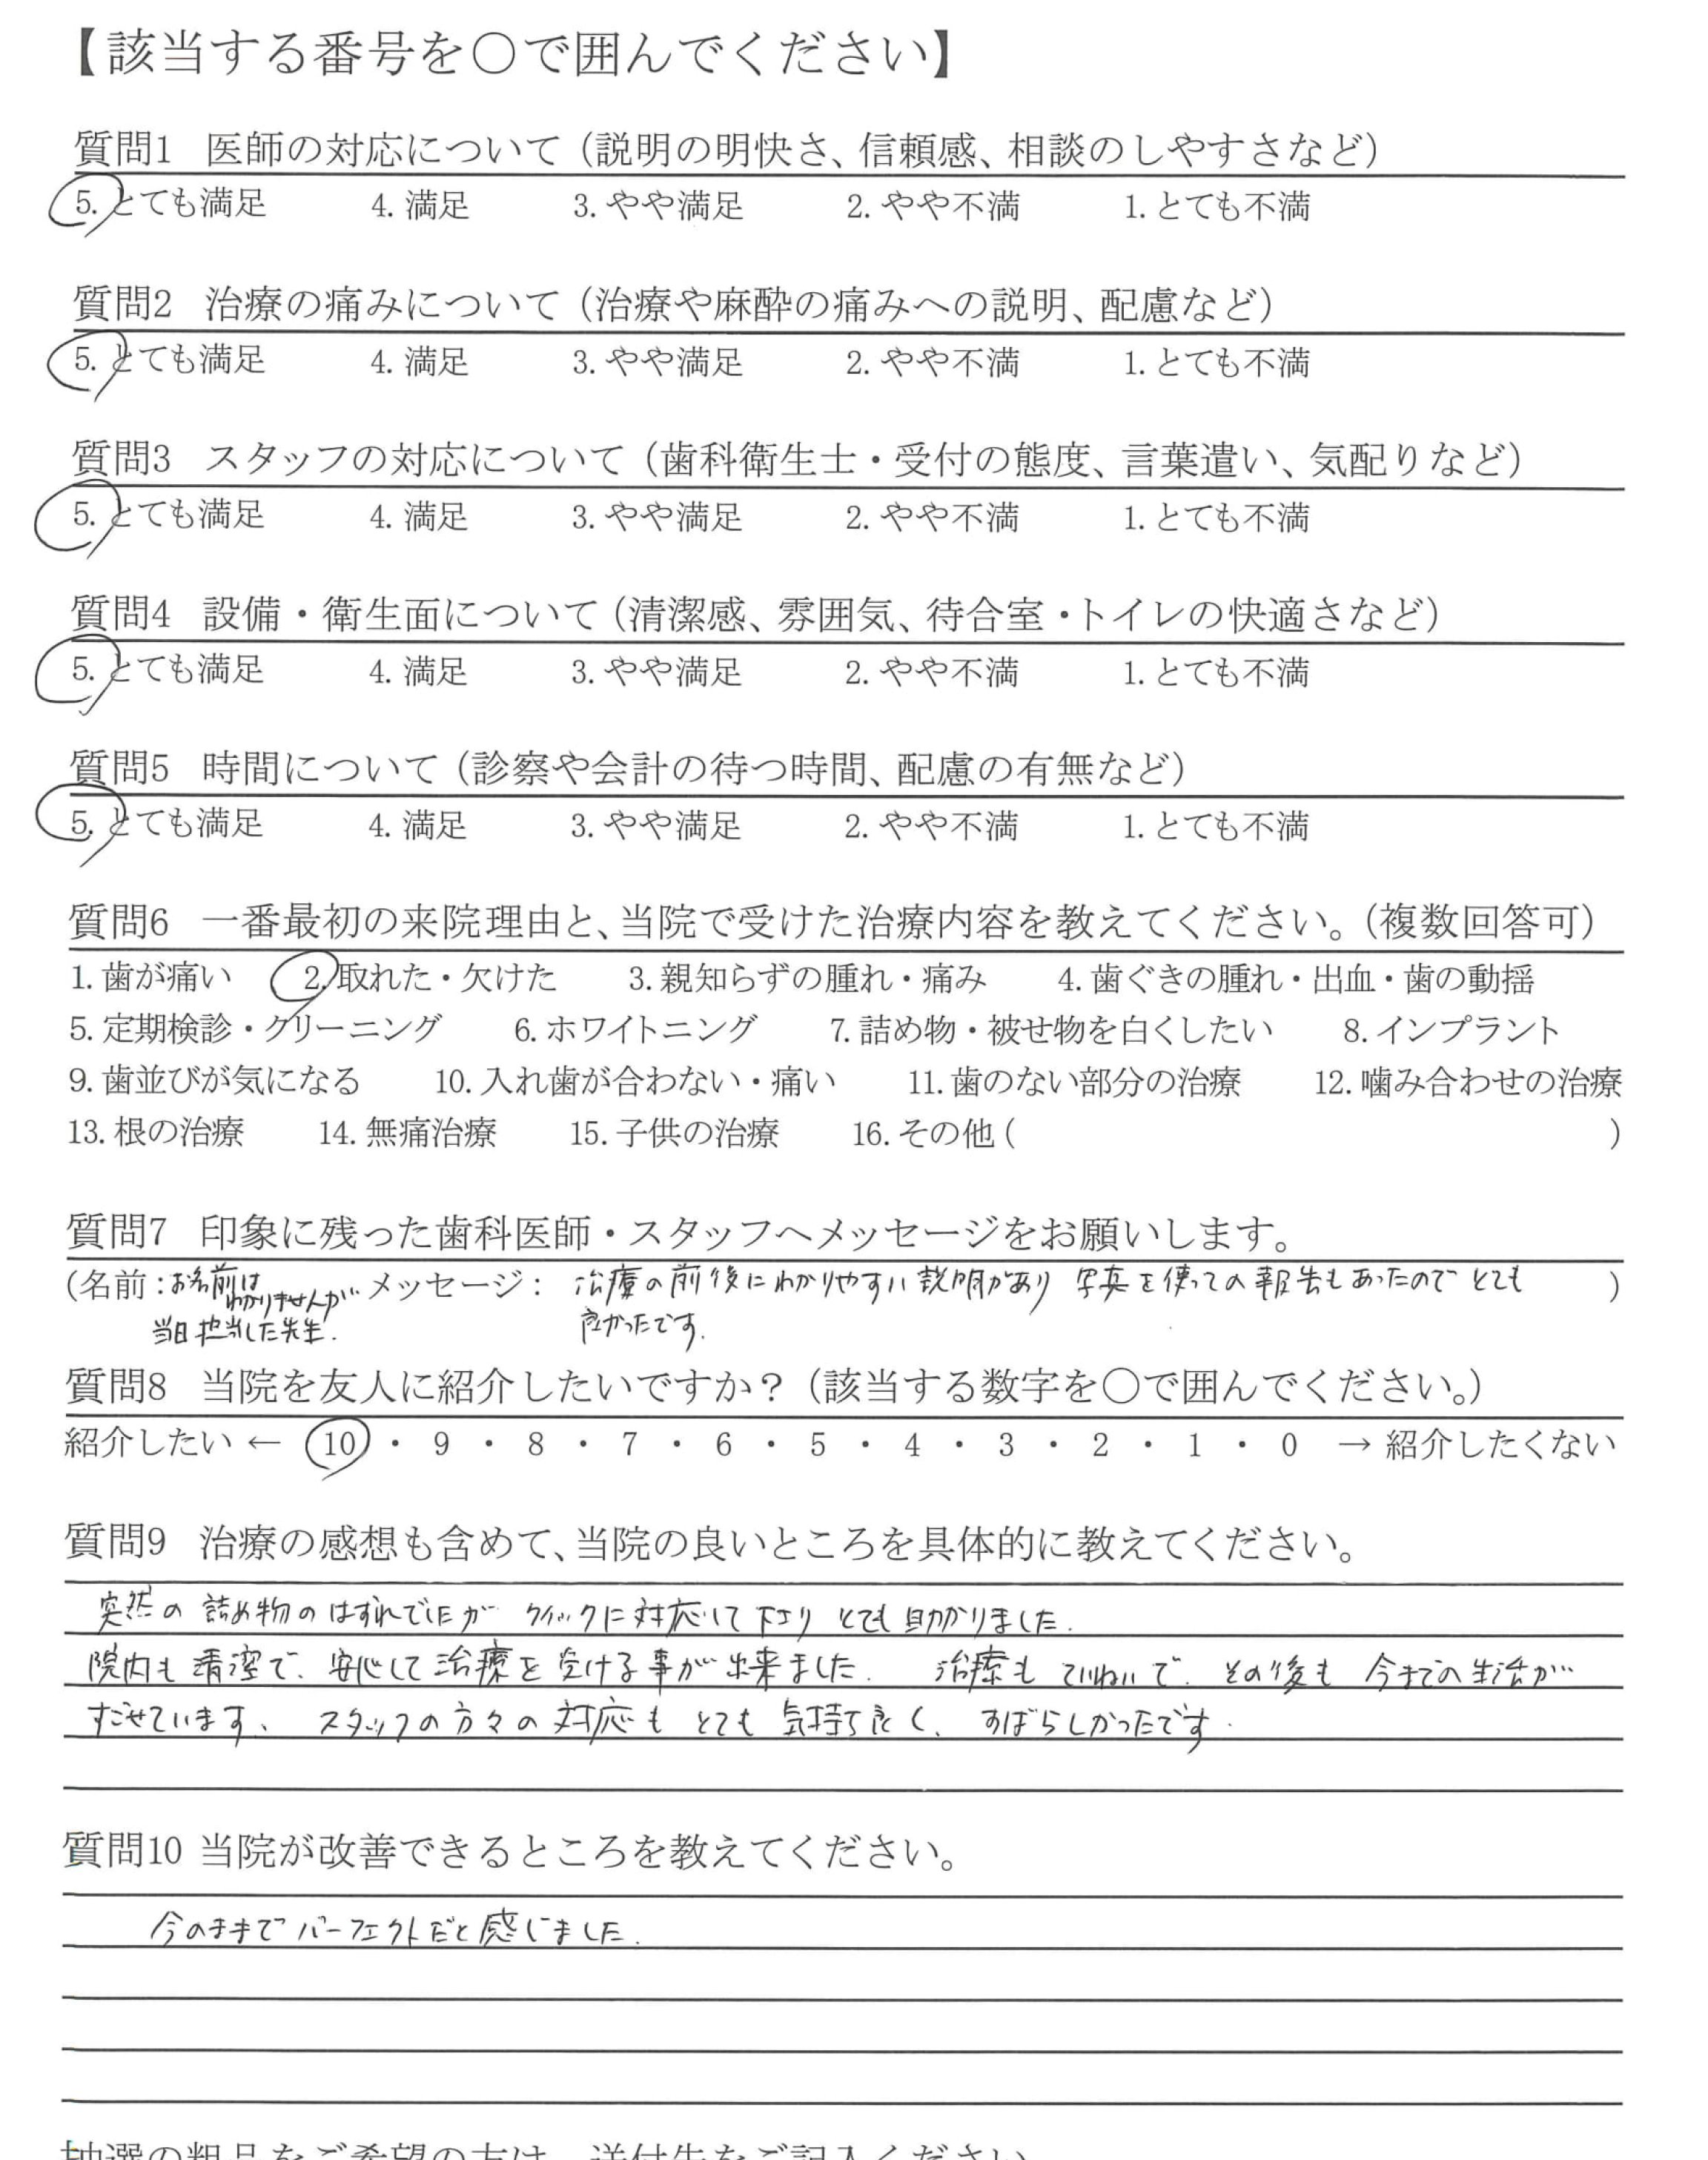 【該当する番号を〇で囲んでください】
質問1 医師の対応について（説明の明快さ、信頼感、相談のしやすさなど）
5. とても満足 4. 満足 3. やや満足 2. やや不満 1. とても不満
質問2 治療の痛みについて（治療や麻酔の痛みへの説明、配慮など）
5. とても満足 4. 満足 3. やや満足 2. やや不満 1. とても不満
質問3 スタッフの対応について（歯科衛生士・受付の態度、言葉遣い、気配りなど）
5. とても満足 4. 満足 3. やや満足 2. やや不満 1. とても不満
質問4 設備・衛生面について（清潔感、雰囲気、待合室・トイレの快適さなど）
5. とても満足 4. 満足 3. やや満足 2. やや不満 1. とても不満
質問5 時間について（診察や会計の待つ時間、配慮の有無など）
5. とても満足 4. 満足 3. やや満足 2. やや不満 1. とても不満
質問6 一番最初の来院理由と、当院で受けた治療内容を教えてください。（複数回答可）
1. 歯が痛い 2. 取れた・欠けた 3. 親知らずの腫れ・痛み 4. 歯ぐきの腫れ・出血・歯の動揺
5. 定期検診・クリーニング 6. ホワイトニング 7. 詰め物・被せ物を白くしたい 8. インプラント
9. 歯並びが気になる 10. 入れ歯が合わない・痛い 11. 歯のない部分の治療 12. 噛み合わせの治療
13. 根の治療 14. 無痛治療 15. 子供の治療 16. その他 ( )
質問7 印象に残った歯科医師・スタッフへメッセージをお願いします。
（名前：お名前はわかりませんが メッセージ： 治療の前後にわかりやすい説明があり 写真を使っての報告もあったので とても ）
当日担当した先生. 良かったです.
質問8 当院を友人に紹介したいですか？（該当する数字を〇で囲んでください。）
紹介したい ← 10 ・ 9 ・ 8 ・ 7 ・ 6 ・ 5 ・ 4 ・ 3 ・ 2 ・ 1 ・ 0 → 紹介したくない
質問9 治療の感想も含めて、当院の良いところを具体的に教えてください。
突然の 詰め物の はずれでしたが クイックに対応して下さり とても助かりました.
院内も清潔で、安心して治療を受ける事が出来ました. 治療も ていねいで、その後も 今までの生活が
すごせています、 スタッフの方々の対応も とても 気持ち良く、すばらしかったです.
質問10 当院が改善できるところを教えてください。
今のままで パーフェクトだと感じました.
抽選の粗品をご希望の方は、送付先をご記入ください